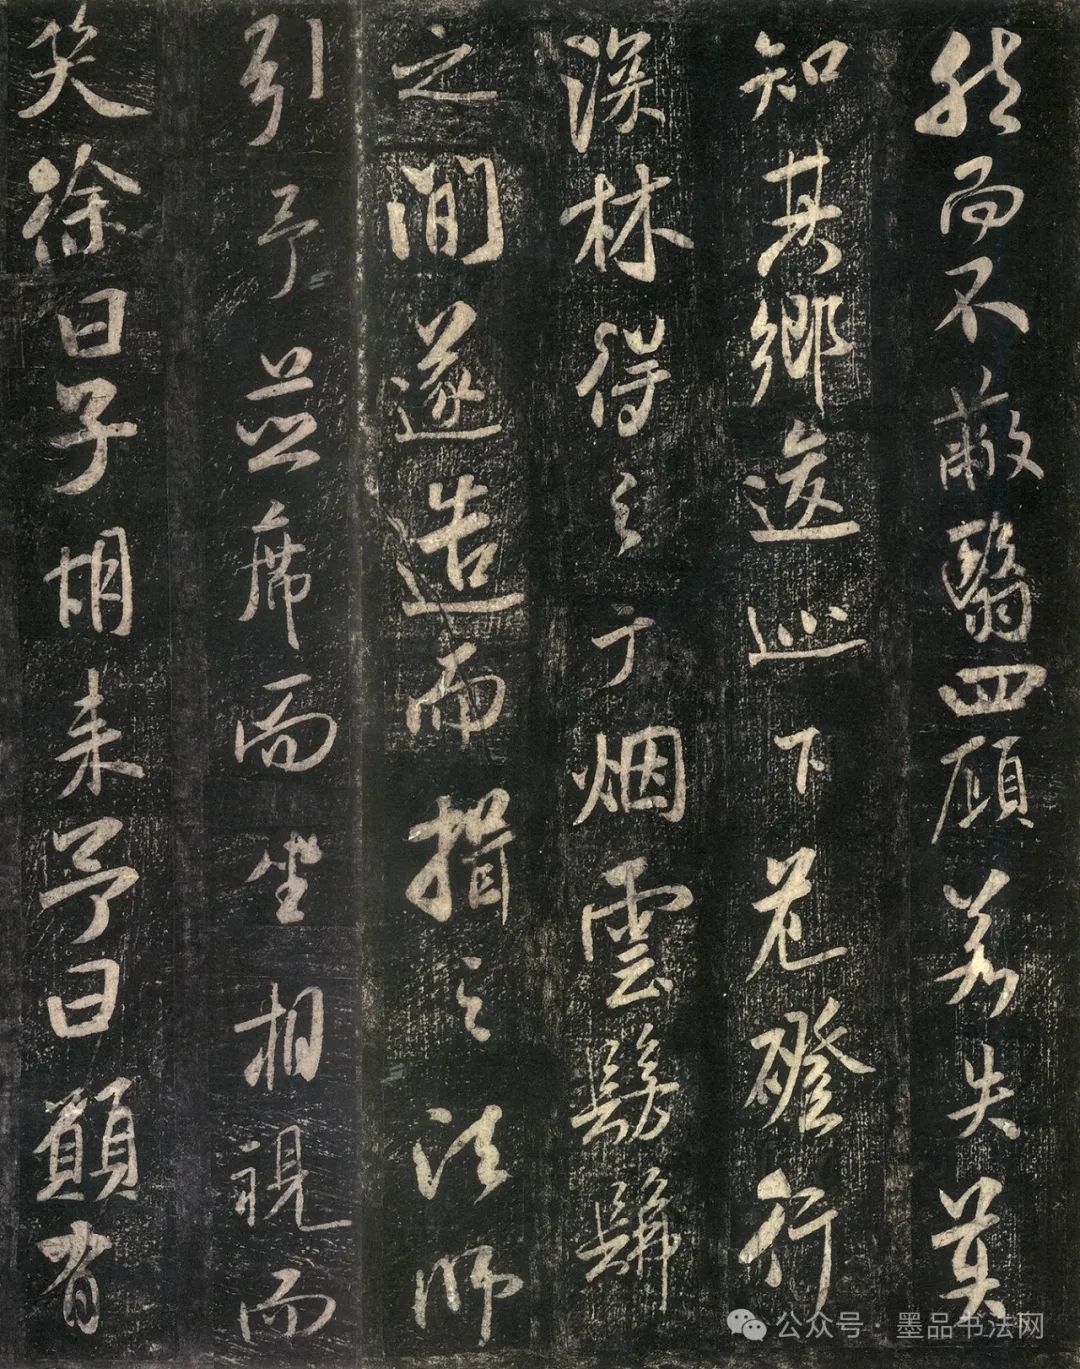 而不蔽翳四顧若失莫
知其鄉逡巡下危磴行
深林得之于烟雲髣髴
之間遂造而揖之法師
引予並席而坐相視而
笑徐曰子胡來予曰願有
公众号·墨品书法网